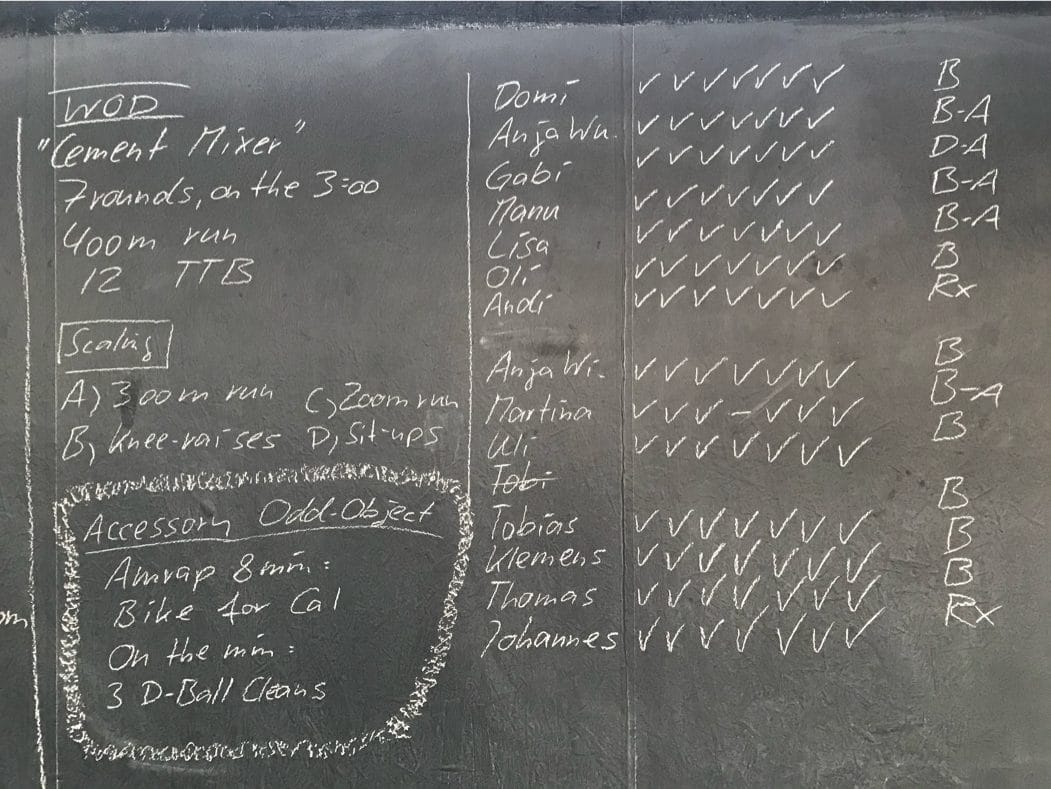 WOD
"Cement Mixer"
7 rounds, on the 3:00
400m run
12 TTB
Scaling
A) 300m run C) 200m run
B) Knee-raises D) Sit-ups
Accessory Odd-Object
Amrap 8 min:
Bike for Cal
On the min:
3 D-Ball Cleans
om
Domi ✓✓✓✓✓✓✓ B
Anja Wu. ✓✓✓✓✓✓✓ B-A
Gabi ✓✓✓✓✓✓✓ D-A
Manu ✓✓✓✓✓✓✓ B-A
Lisa ✓✓✓✓✓✓✓ B-A
Oli ✓✓✓✓✓✓✓ B
Andi ✓✓✓✓✓✓✓ Rx
Anja Wi. ✓✓✓✓✓✓✓ B
Martina ✓✓✓–✓✓✓ B-A
Uli ✓✓✓✓✓✓✓ B
Tobi
Tobias ✓✓✓✓✓✓✓ B
Klemens ✓✓✓✓✓✓✓ B
Thomas ✓✓✓✓✓✓✓ B
Johannes ✓✓✓✓✓✓✓ Rx